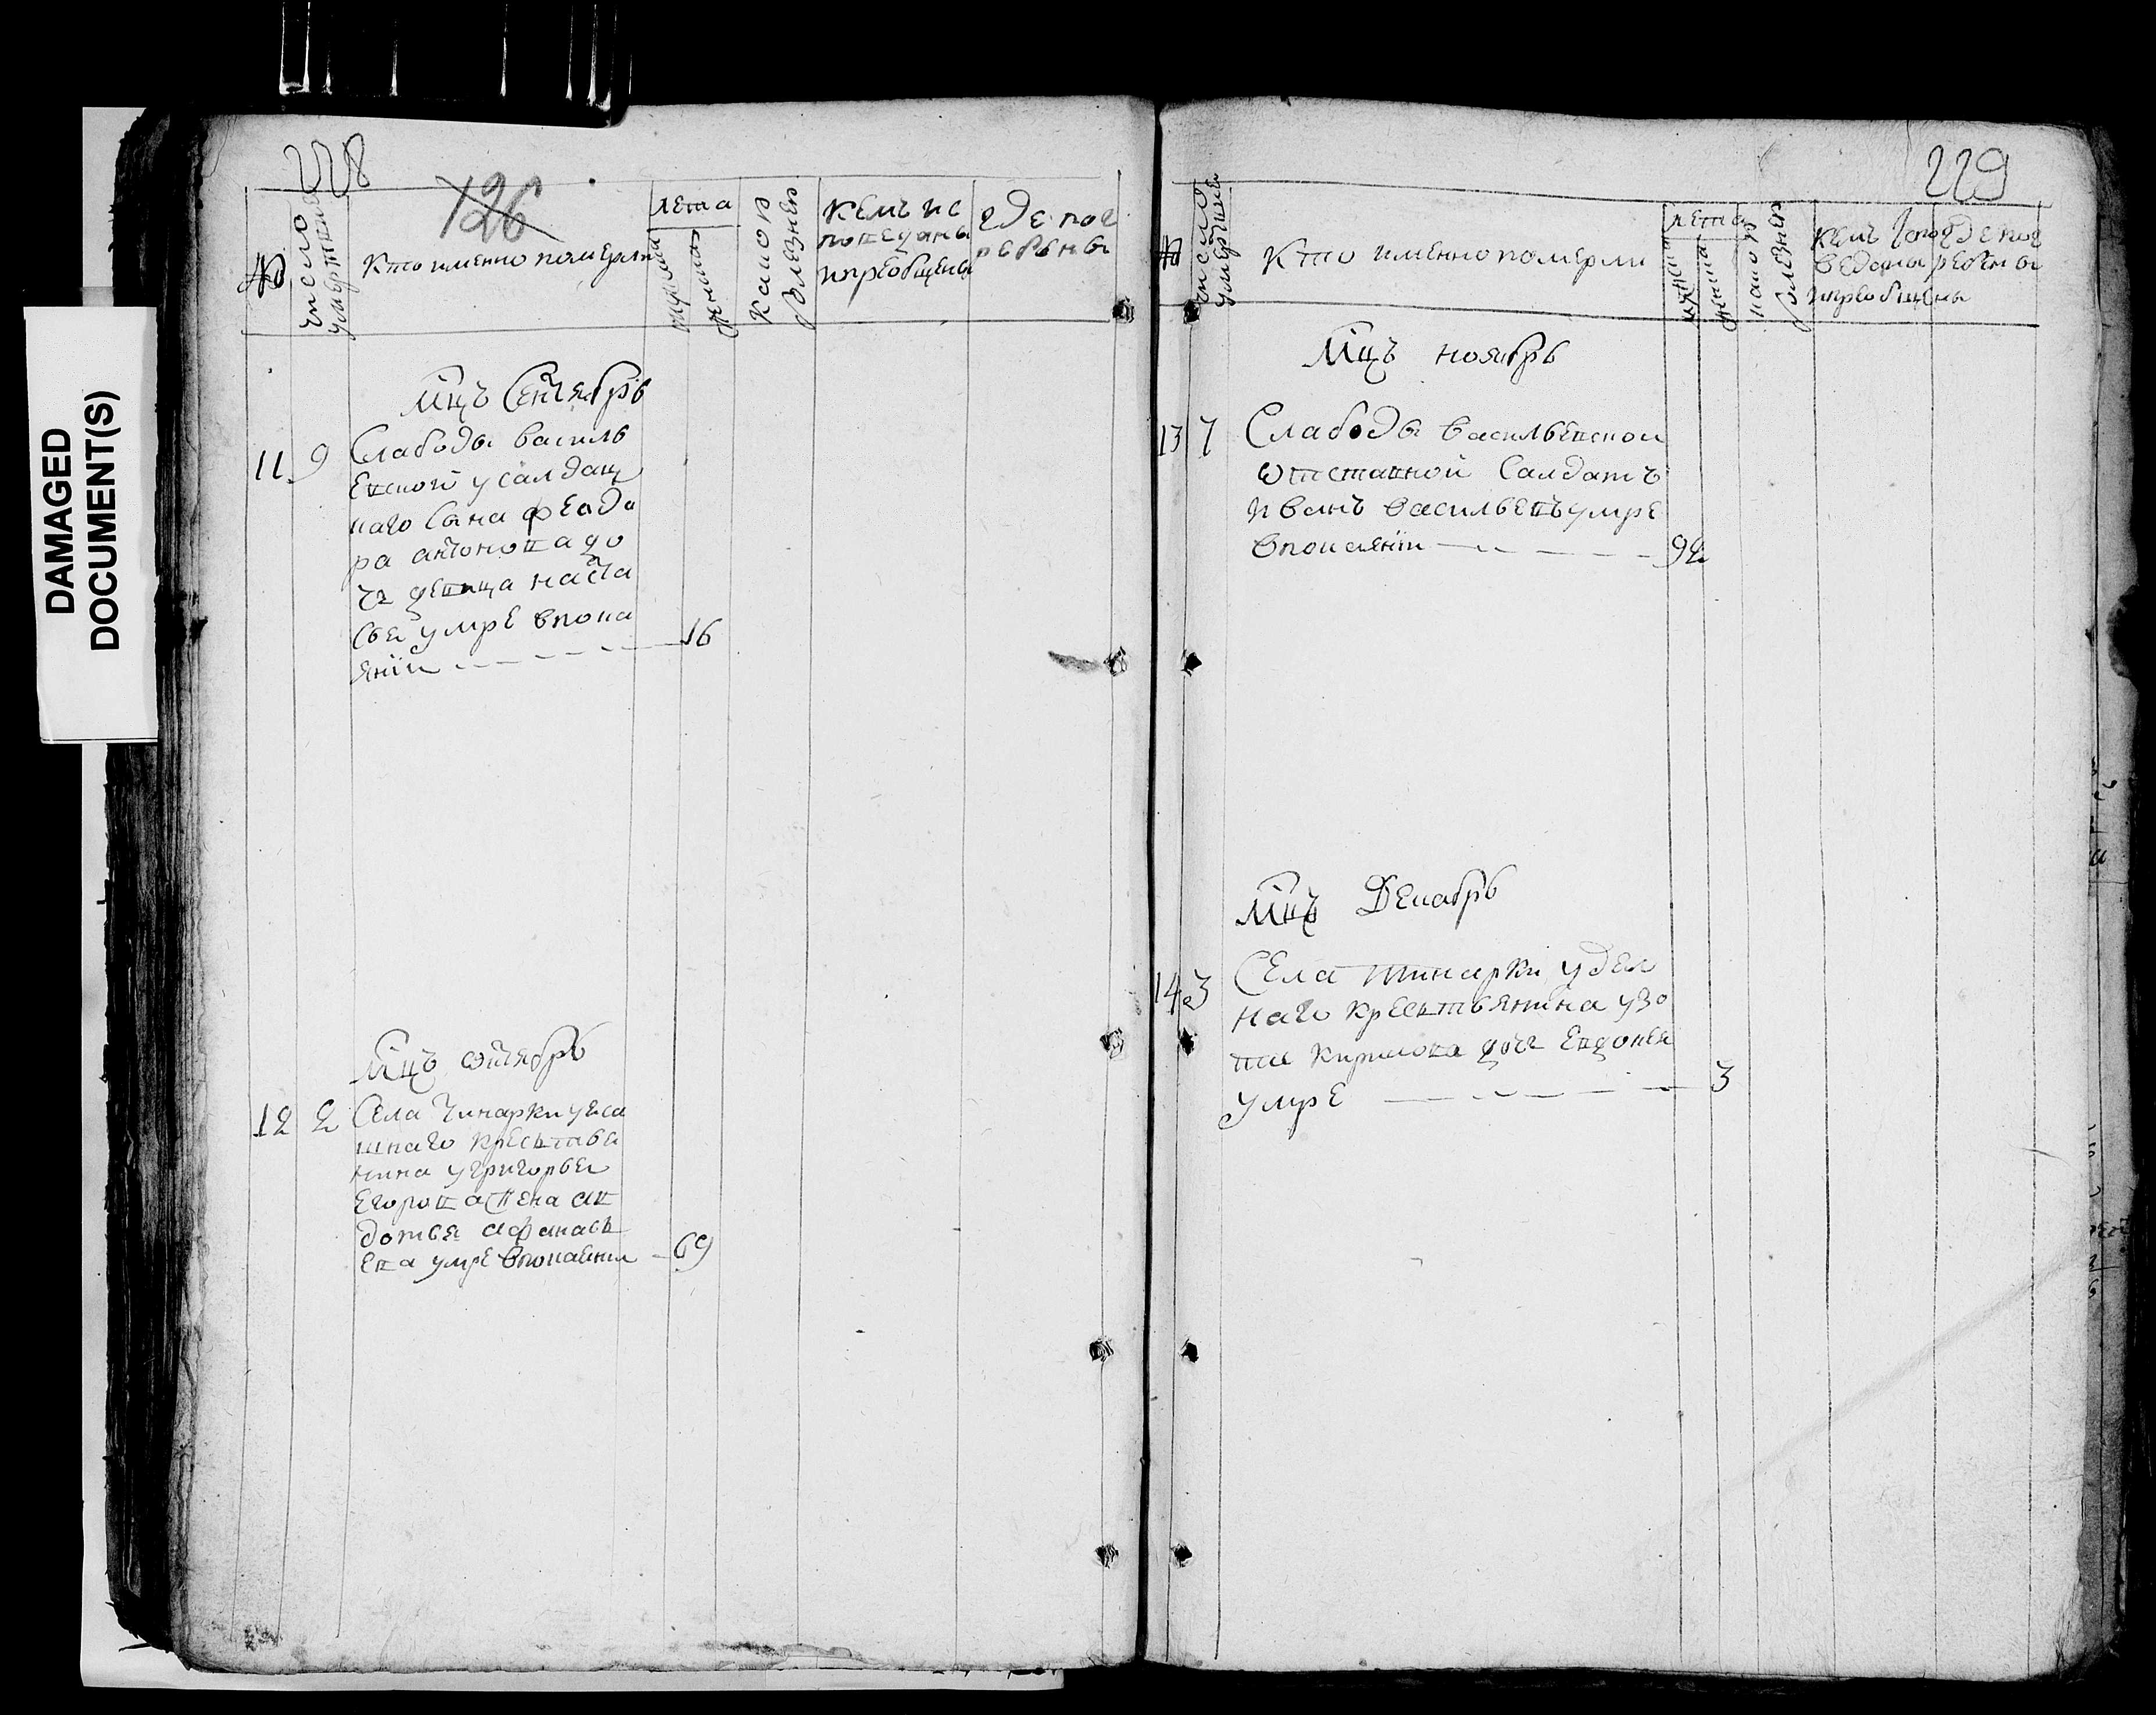 DAMAGED
DOCUMENT(S)
228
126
№
число умертвие
кто именно померли
лета
мужска
женска
какою
болезнею
кемъ ис
поведаны
иприобщены
где пог
ребены
Мцъ Сентябрь
11 9 Слабоды василь
евской усалдац
каго сына феодо
ра антонова до
чь девица наста
сья умре впока
янiи 16
Мцъ октябрь
12 2 Села Чинарки уяса
шнаго кресьтья
нина угригорья
Егорова жена ав
дотья афанась
ева умре впокаянии 69
229
№
число
умертвие
Кто именно померли
лета
мужска
женска
какою
болезнею
кемъ испо
ведоны
иприобщены
где пог
ребены
Мцъ ноябрь
13 7 Слабоды васильевской
отставной Салдатъ
Иванъ васильевъ умре
впокаянiи 92
Мцъ Декабрь
14 3 Села тинарки удел
наго кресьтьянина узо
кирилова дочь Евдокея
умре 3